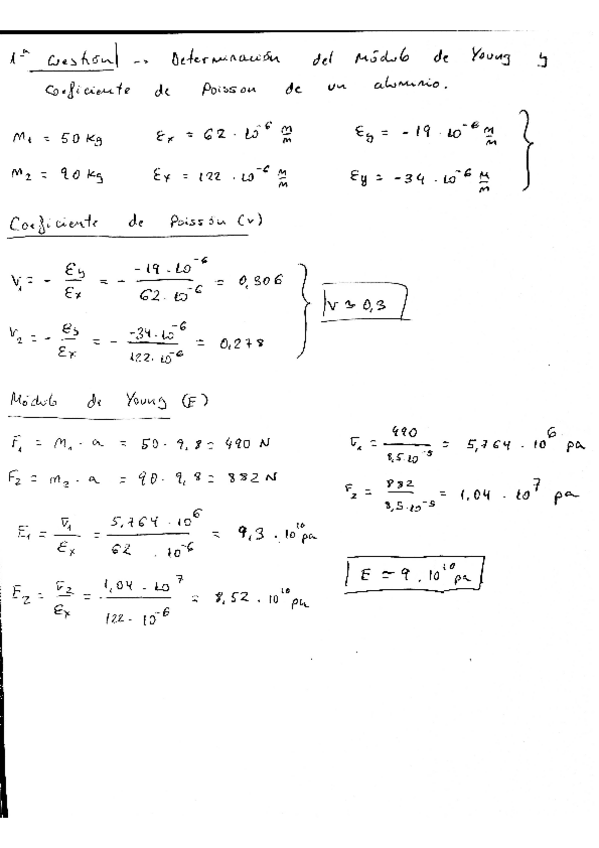 1ª Cuestión -> Determinación del Módulo de Young y
Coeficiente de Poisson de un aluminio.
M₁ = 50 Kg   εx = 62 · 10⁻⁶ m/m   εy = -19 · 10⁻⁶ m/m
M₂ = 90 Kg   εx = 122 · 10⁻⁶ m/m   εy = -34 · 10⁻⁶ m/m
Coeficiente de Poisson (v)
V₁ = - εy/εx = - (-19 · 10⁻⁶)/(62 · 10⁻⁶) = 0,306
V ≈ 0,3
V₂ = - εy/εx = - (-34 · 10⁻⁶)/(122 · 10⁻⁶) = 0,278
Módulo de Young (E)
F₁ = M₁ · a = 50 · 9,8 = 490 N   σ₁ = 490/(8,5 · 10⁻⁵) = 5,764 · 10⁶ pa
F₂ = m₂ · a = 90 · 9,8 = 882 N   σ₂ = 882/(8,5 · 10⁻⁵) = 1,04 · 10⁷ pa
E₁ = σ₁/εx = (5,764 · 10⁶)/(62 · 10⁻⁶) = 9,3 · 10¹⁰ pa
E ≈ 9 · 10¹⁰ pa
E₂ = σ₂/εx = (1,04 · 10⁷)/(122 · 10⁻⁶) = 8,52 · 10¹⁰ pa